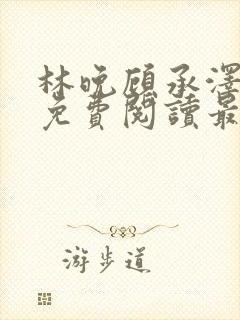 林晚顾承澤
免費閱讀最
游步道